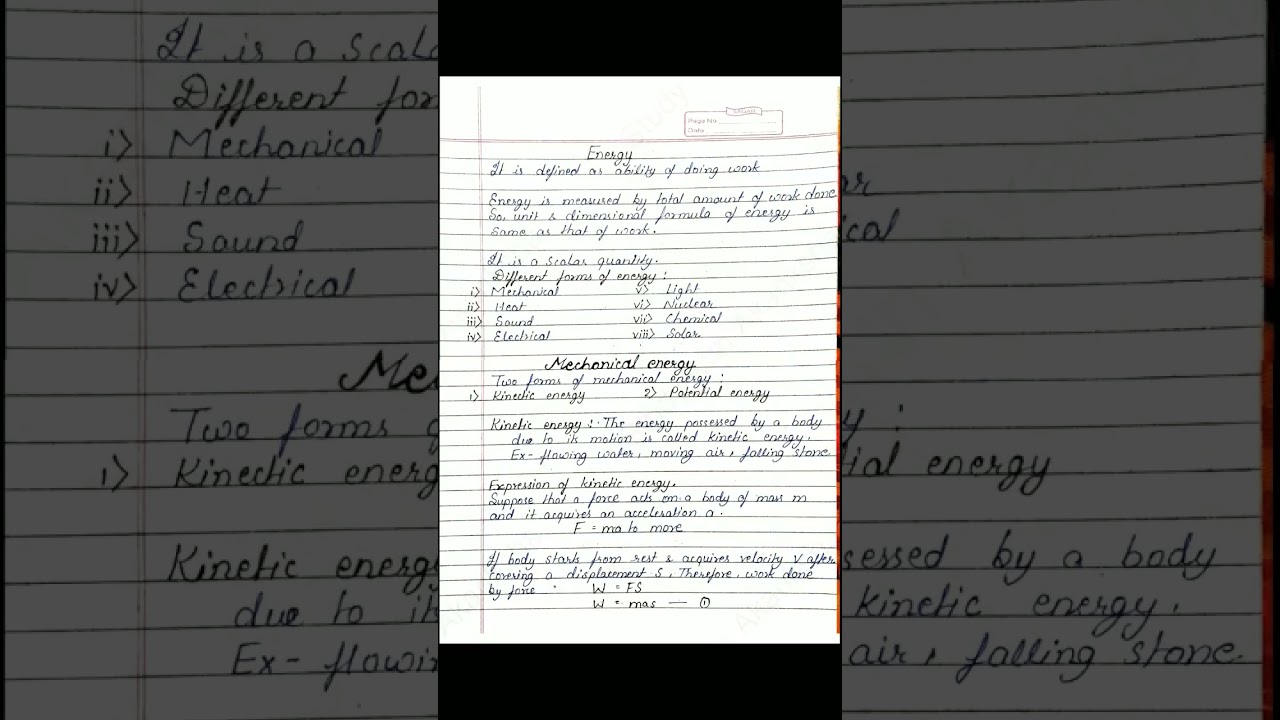 Page No.
Date
Energy
It is defined as ability of doing work
Energy is measured by total amount of work done
So, unit & dimensional formula of energy is
same as that of work.
It is a scalar quantity.
Different forms of energy :
i) Mechanical v) Light
ii) Heat vi) Nuclear
iii) Sound vii) Chemical
iv) Electrical viii) Solar
Mechanical energy
Two forms of mechanical energy :
1) Kinectic energy 2) Potential energy
Kinetic energy :- The energy possessed by a body
due to its motion is called kinetic energy.
Ex- flowing water, moving air, falling stone.
Expression of kinetic energy.
Suppose that a force acts on a body of mass m
and it acquires an acceleration a.
F = ma to more
If body starts from rest & acquires velocity V after
covering a displacement S, Therefore, work done
by force W = FS
W = mas — ①